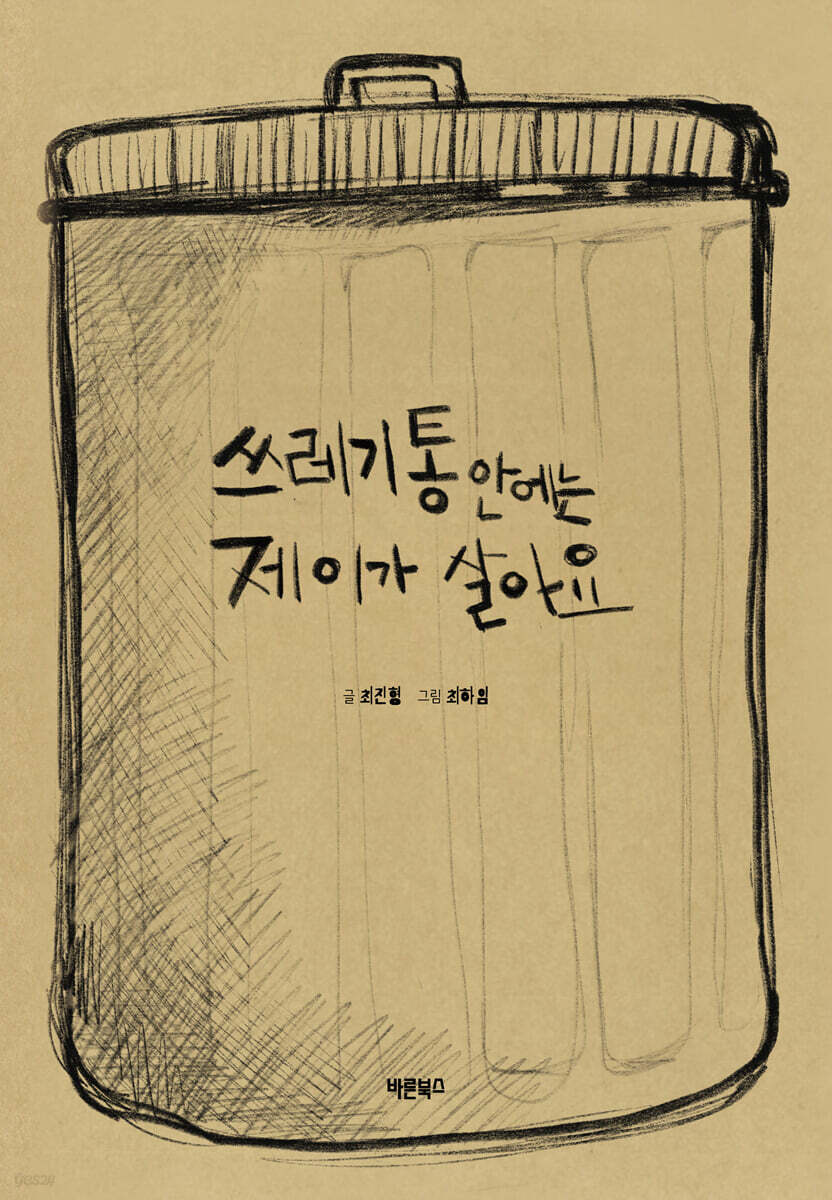 쓰레기통 안에는
제이가 살아요
글 최진형 그림 최하임
바른북스
yes24